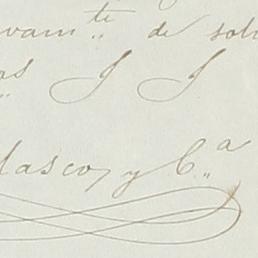 vam^te de sol
os S S
lasco y C^a